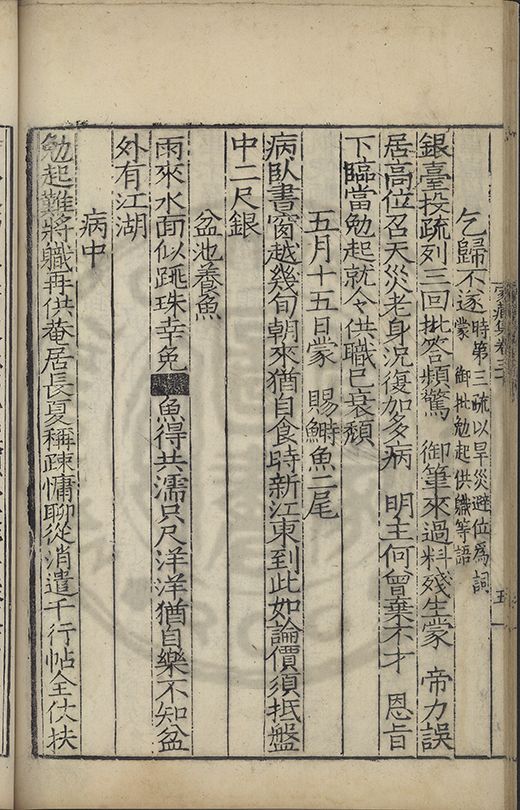 乞歸不遂 時第三疏以旱災避位爲詞
蒙 御批勉起供職等語
銀臺投疏列三回批答頻驚 御筆來過料殘生蒙 帝力誤
居高位召天災老身況復加多病 明主何曾棄不才 恩旨
下臨當勉起就令供職已衰頹
五月十五日蒙 賜鰣魚二尾
病臥書窗越幾旬朝來猶自食時新江東到此如論價須抵盤
中二尺銀
盆池養魚
雨來水面似跳珠幸免 魚得共濡只尺洋洋猶自樂不知盆
外有江湖
病中
勉起難將職再供菴居長夏稱疎慵聊從消遣千行帖全仗扶